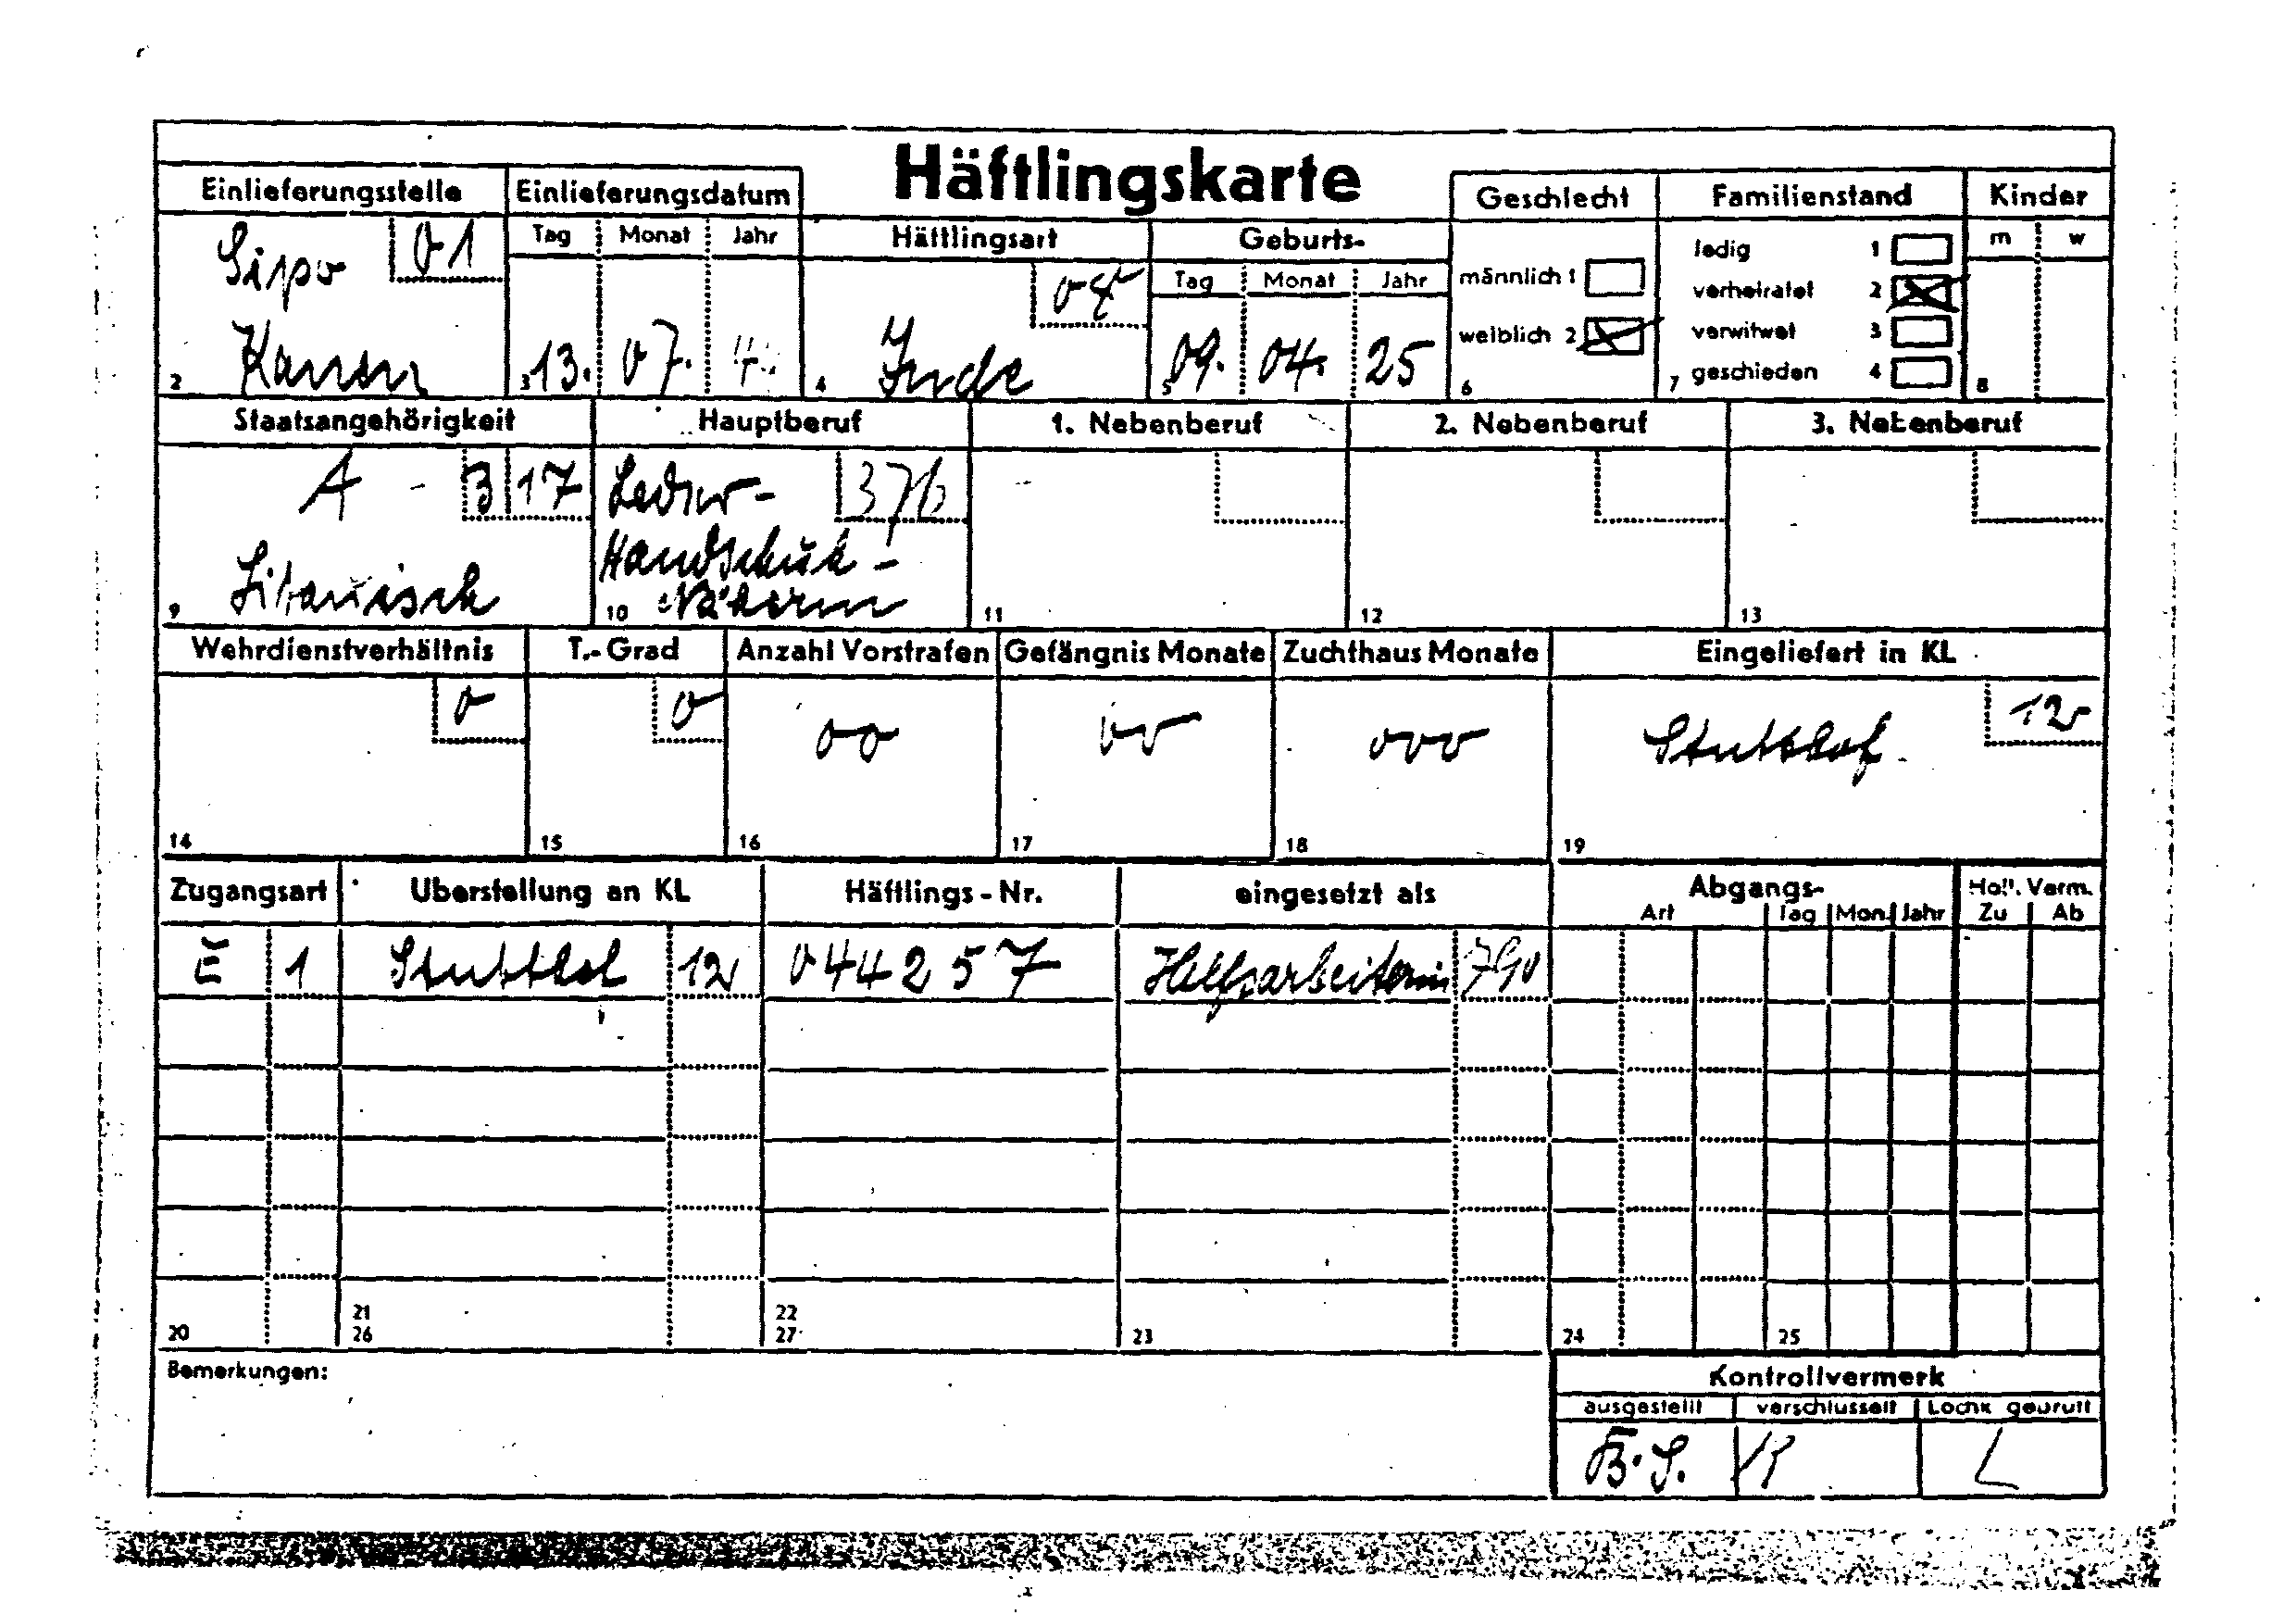 Häftlingskarte
Einlieferungsstelle Einlieferungsdatum Geschlecht Familienstand Kinder
Sipo 01 Tag Monat Jahr Häftlingsart Geburts- m w
Tag Monat Jahr
ledig 1
männlich 1
verheiratet 2
weiblich 2
verwitwet 3
2 Kauen 3 13. 07. 4 Jude 5 09. 04. 25 6 7 geschieden 4 8
Staatsangehörigkeit Hauptberuf 1. Nebenberuf 2. Nebenberuf 3. Nebenberuf
A - 3 17 Leder- 376
Handschuh-
9 Litauisch 10 Näherin 11 12 13
Wehrdienstverhältnis T.-Grad Anzahl Vorstrafen Gefängnis Monate Zuchthaus Monate Eingeliefert in KL
0 0 00 00 000 Stutthof. 12
14 15 16 17 18 19
Zugangsart Uberstellung an KL Häftlings-Nr. eingesetzt als Abgangs- Holl. Verm.
Art Tag Mon. Jahr Zu Ab
E 1 Stutthof 12 044257 Hilfsarbeiterin 790
21 22
20 26 27 23 24 25
Bemerkungen: Kontrollvermerk
ausgestellt verschlusselt Lochk geprüft
B. S. L